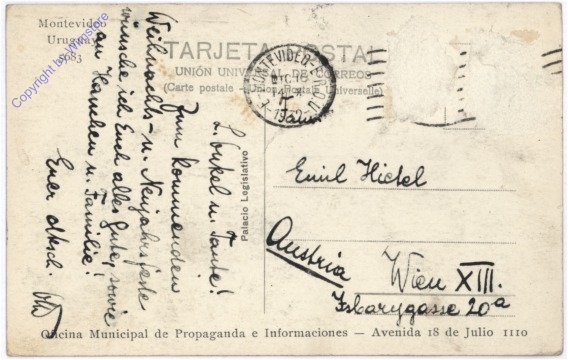 Montevideo
Uruguay
9683
Copyright by Winstore
TARJETA POSTAL
UNIÓN UNIVERSAL DE CORREOS
(Carte postale - Union Postale Universelle)
MONTEVIDEO
DIC
1932
Palacio Legislativo
L. Onkel u. Tante!
Zum kommenden
Weihnachts- u. Neujahrsfeste
wünsche ich Euch alles Gute, sowie
an Hanchen u. Familie!
Euer
Emil Hickel
Austria
Wien XIII.
Isbarygasse 20a
Oficina Municipal de Propaganda e Informaciones — Avenida 18 de Julio 1110